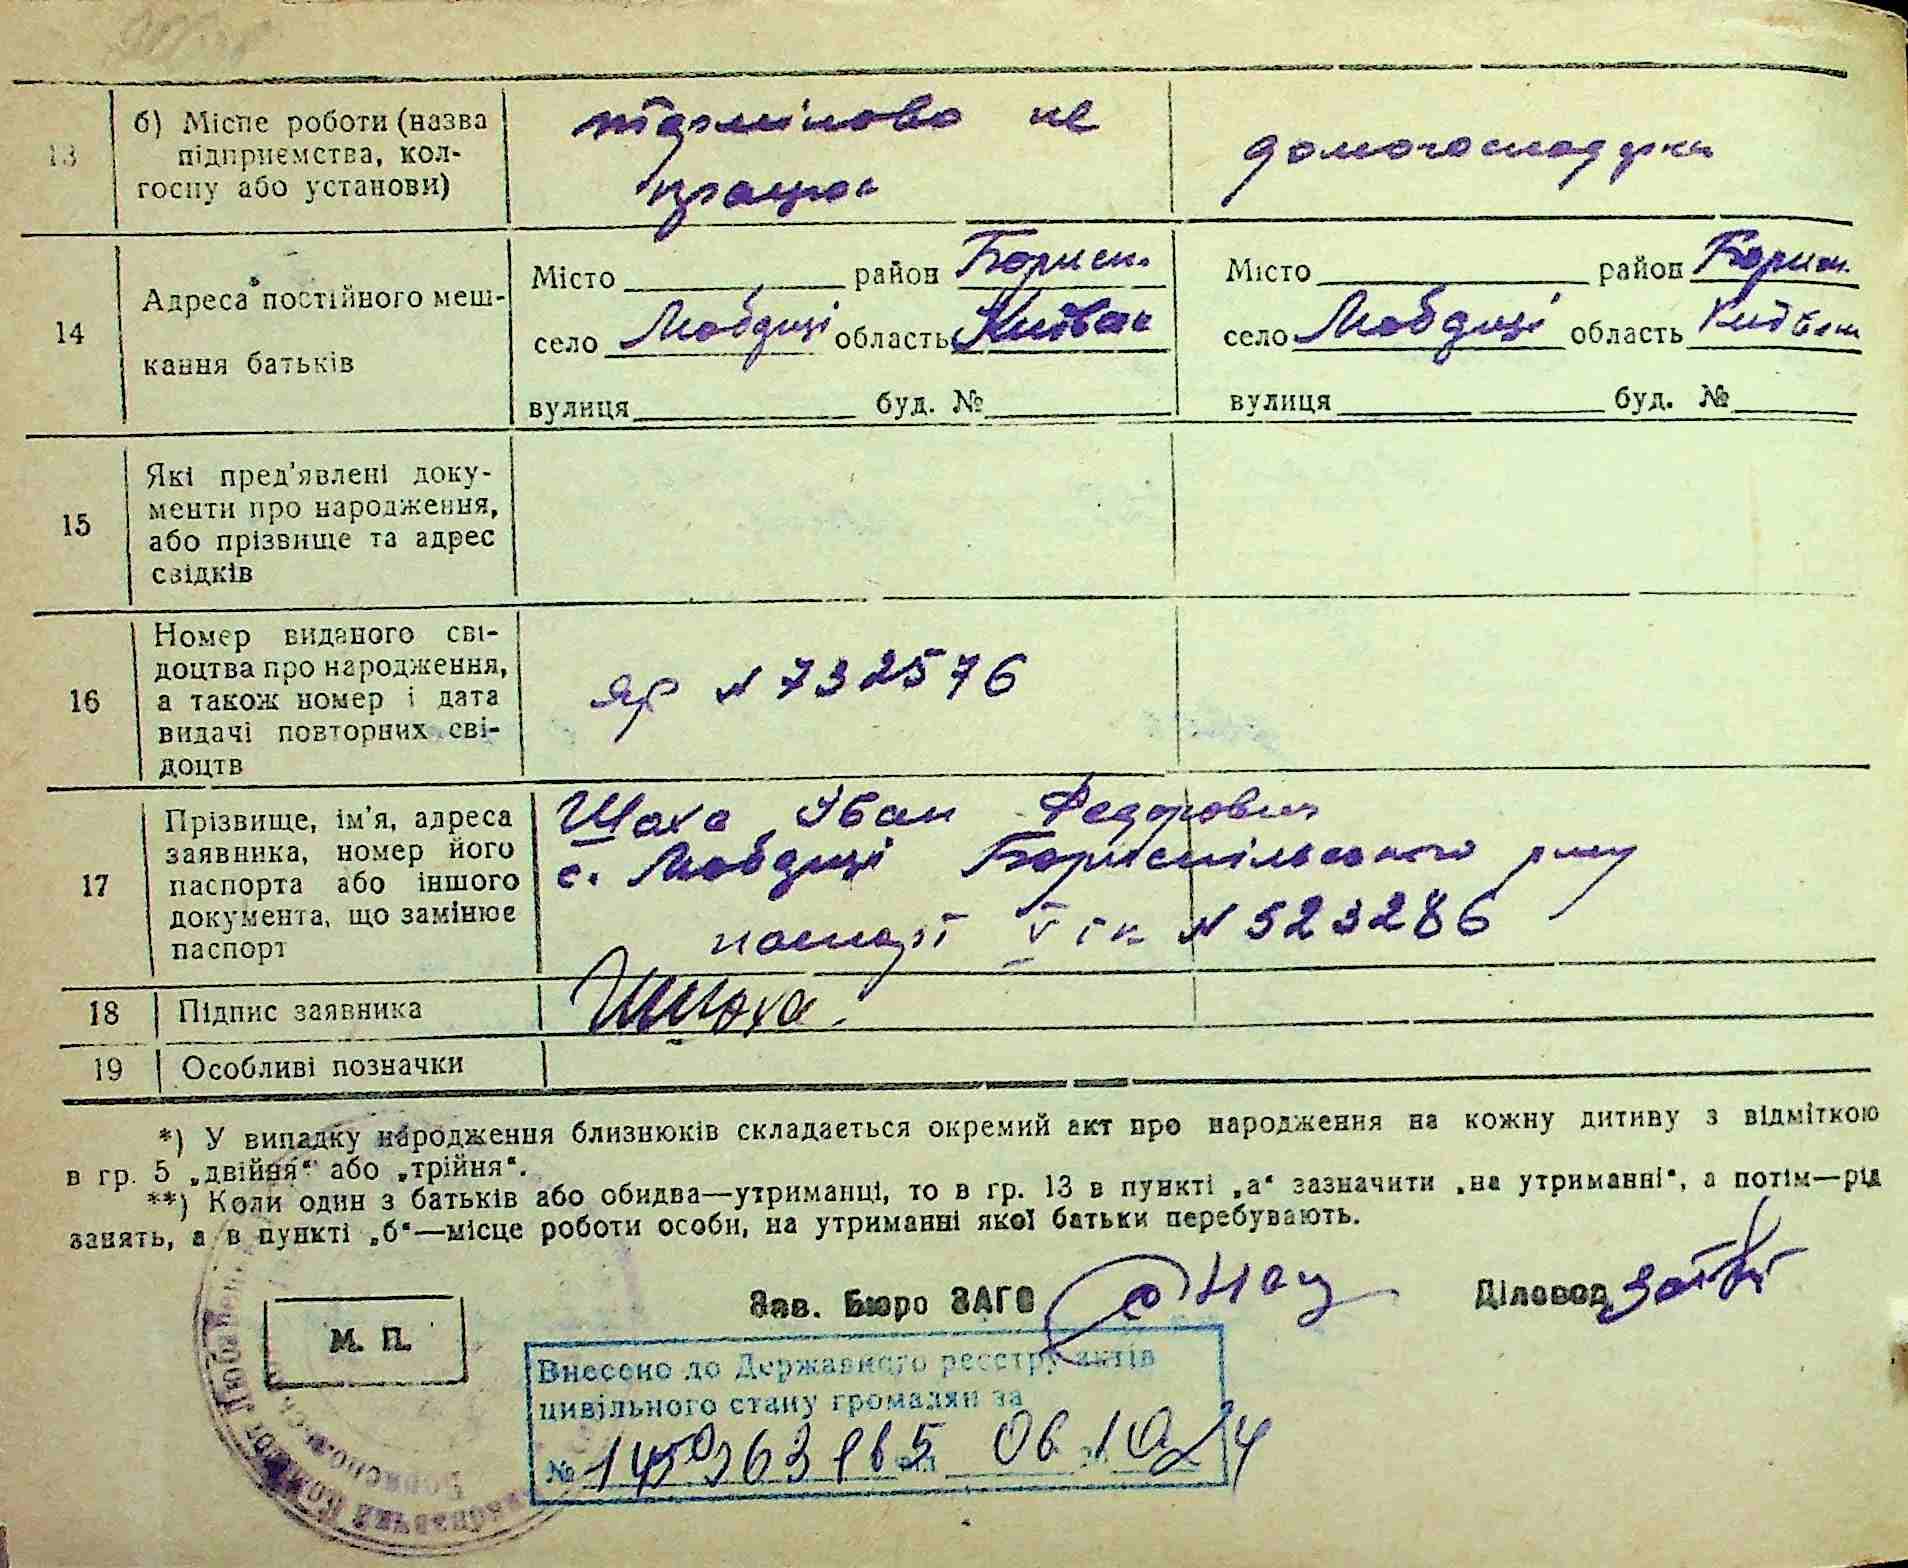 13 б) Місце роботи (назва
підприємства, кол-
госпу або установи)
не
працює
домогосподарка
14 Адреса постійного меш-
кання батьків
Місто район Борисп.
село Любарці область Київська
вулиця буд. №
Місто район Борисп.
село Любарці область Київська
вулиця буд. №
15 Які пред'явлені доку-
менти про народження,
або прізвище та адрес
свідків
16 Номер виданого сві-
доцтва про народження,
а також номер і дата
видачі повторних сві-
доцтв
ЯР № 732576
17 Прізвище, ім'я, адреса
заявника, номер його
паспорта або іншого
документа, що замінює
паспорт
Шаха Іван Федорович
с. Любарці Бориспільського р-ну
паспорт № 523286
18 Підпис заявника
Шаха.
19 Особливі позначки
*) У випадку народження близнюків складається окремий акт про народження на кожну дитину з відміткою
в гр. 5 „двійня“ або „трійня“.
**) Коли один з батьків або обидва—утриманці, то в гр. 13 в пункті „а“ зазначити „на утриманні“, а потім—рід
занять, а в пункті „б“—місце роботи особи, на утриманні якої батьки перебувають.
Зав. Бюро ЗАГС
Діловод
М. П.
Внесено до Державного реєстру актів
цивільного стану громадян за
№ від 06.10.24